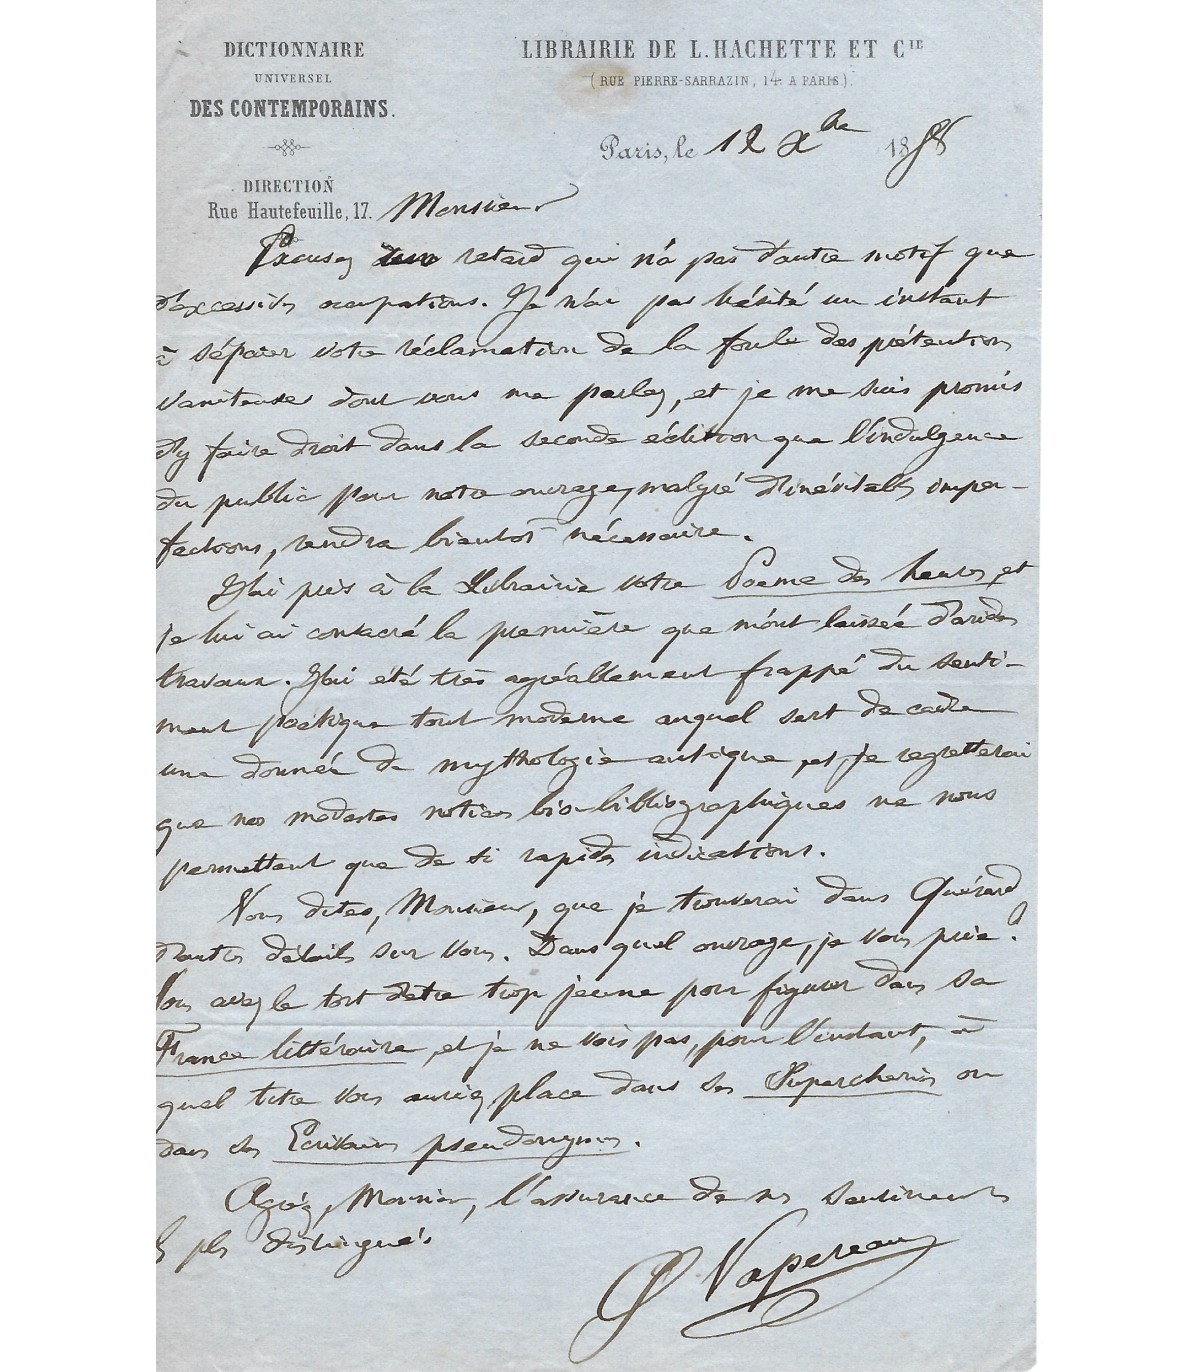 DICTIONNAIRE
UNIVERSEL
DES CONTEMPORAINS.
DIRECTION
Rue Hautefeuille, 17.
LIBRAIRIE DE L. HACHETTE ET CIE
(RUE PIERRE-SARRAZIN, 14. A PARIS).
Paris, le 12 Xbre 1858
Monsieur
Excusez un retard qui n'a pas d'autre motif que
d'excessives occupations. Je n'ai pas hésité un instant
à séparer votre réclamation de la foule des prétentions
vaniteuses dont vous me parlez, et je me suis promis
d'y faire droit dans la seconde édition que l'indulgence
du public pour notre ouvrage, malgré d'inévitables imper-
fections, rendra bientôt nécessaire.
J'ai pris à la Librairie votre Poeme des heures et
je lui ai consacré la première que m'ont laissée d'arides
travaux. J'ai été très agréablement frappé du senti-
ment poétique tout moderne auquel sert de cadre
une donnée de mythologie antique, et je regretterai
que nos modestes notices bio-bibliographiques ne nous
permettent que de si rapides indications.
Vous dites, Monsieur, que je trouverai dans Quérard
d'autres détails sur vous. Dans quel ouvrage, je vous prie?
Vous avez le tort d'etre trop jeune pour figurer dans sa
France littéraire, et je ne vois pas, pour l'instant, à
quel titre vous auriez place dans ses Supercheries ou
dans ses Ecrivains pseudonymes.
Agréez, Monsieur, l'assurance de mes sentiments
les plus distingués
G Vapereau